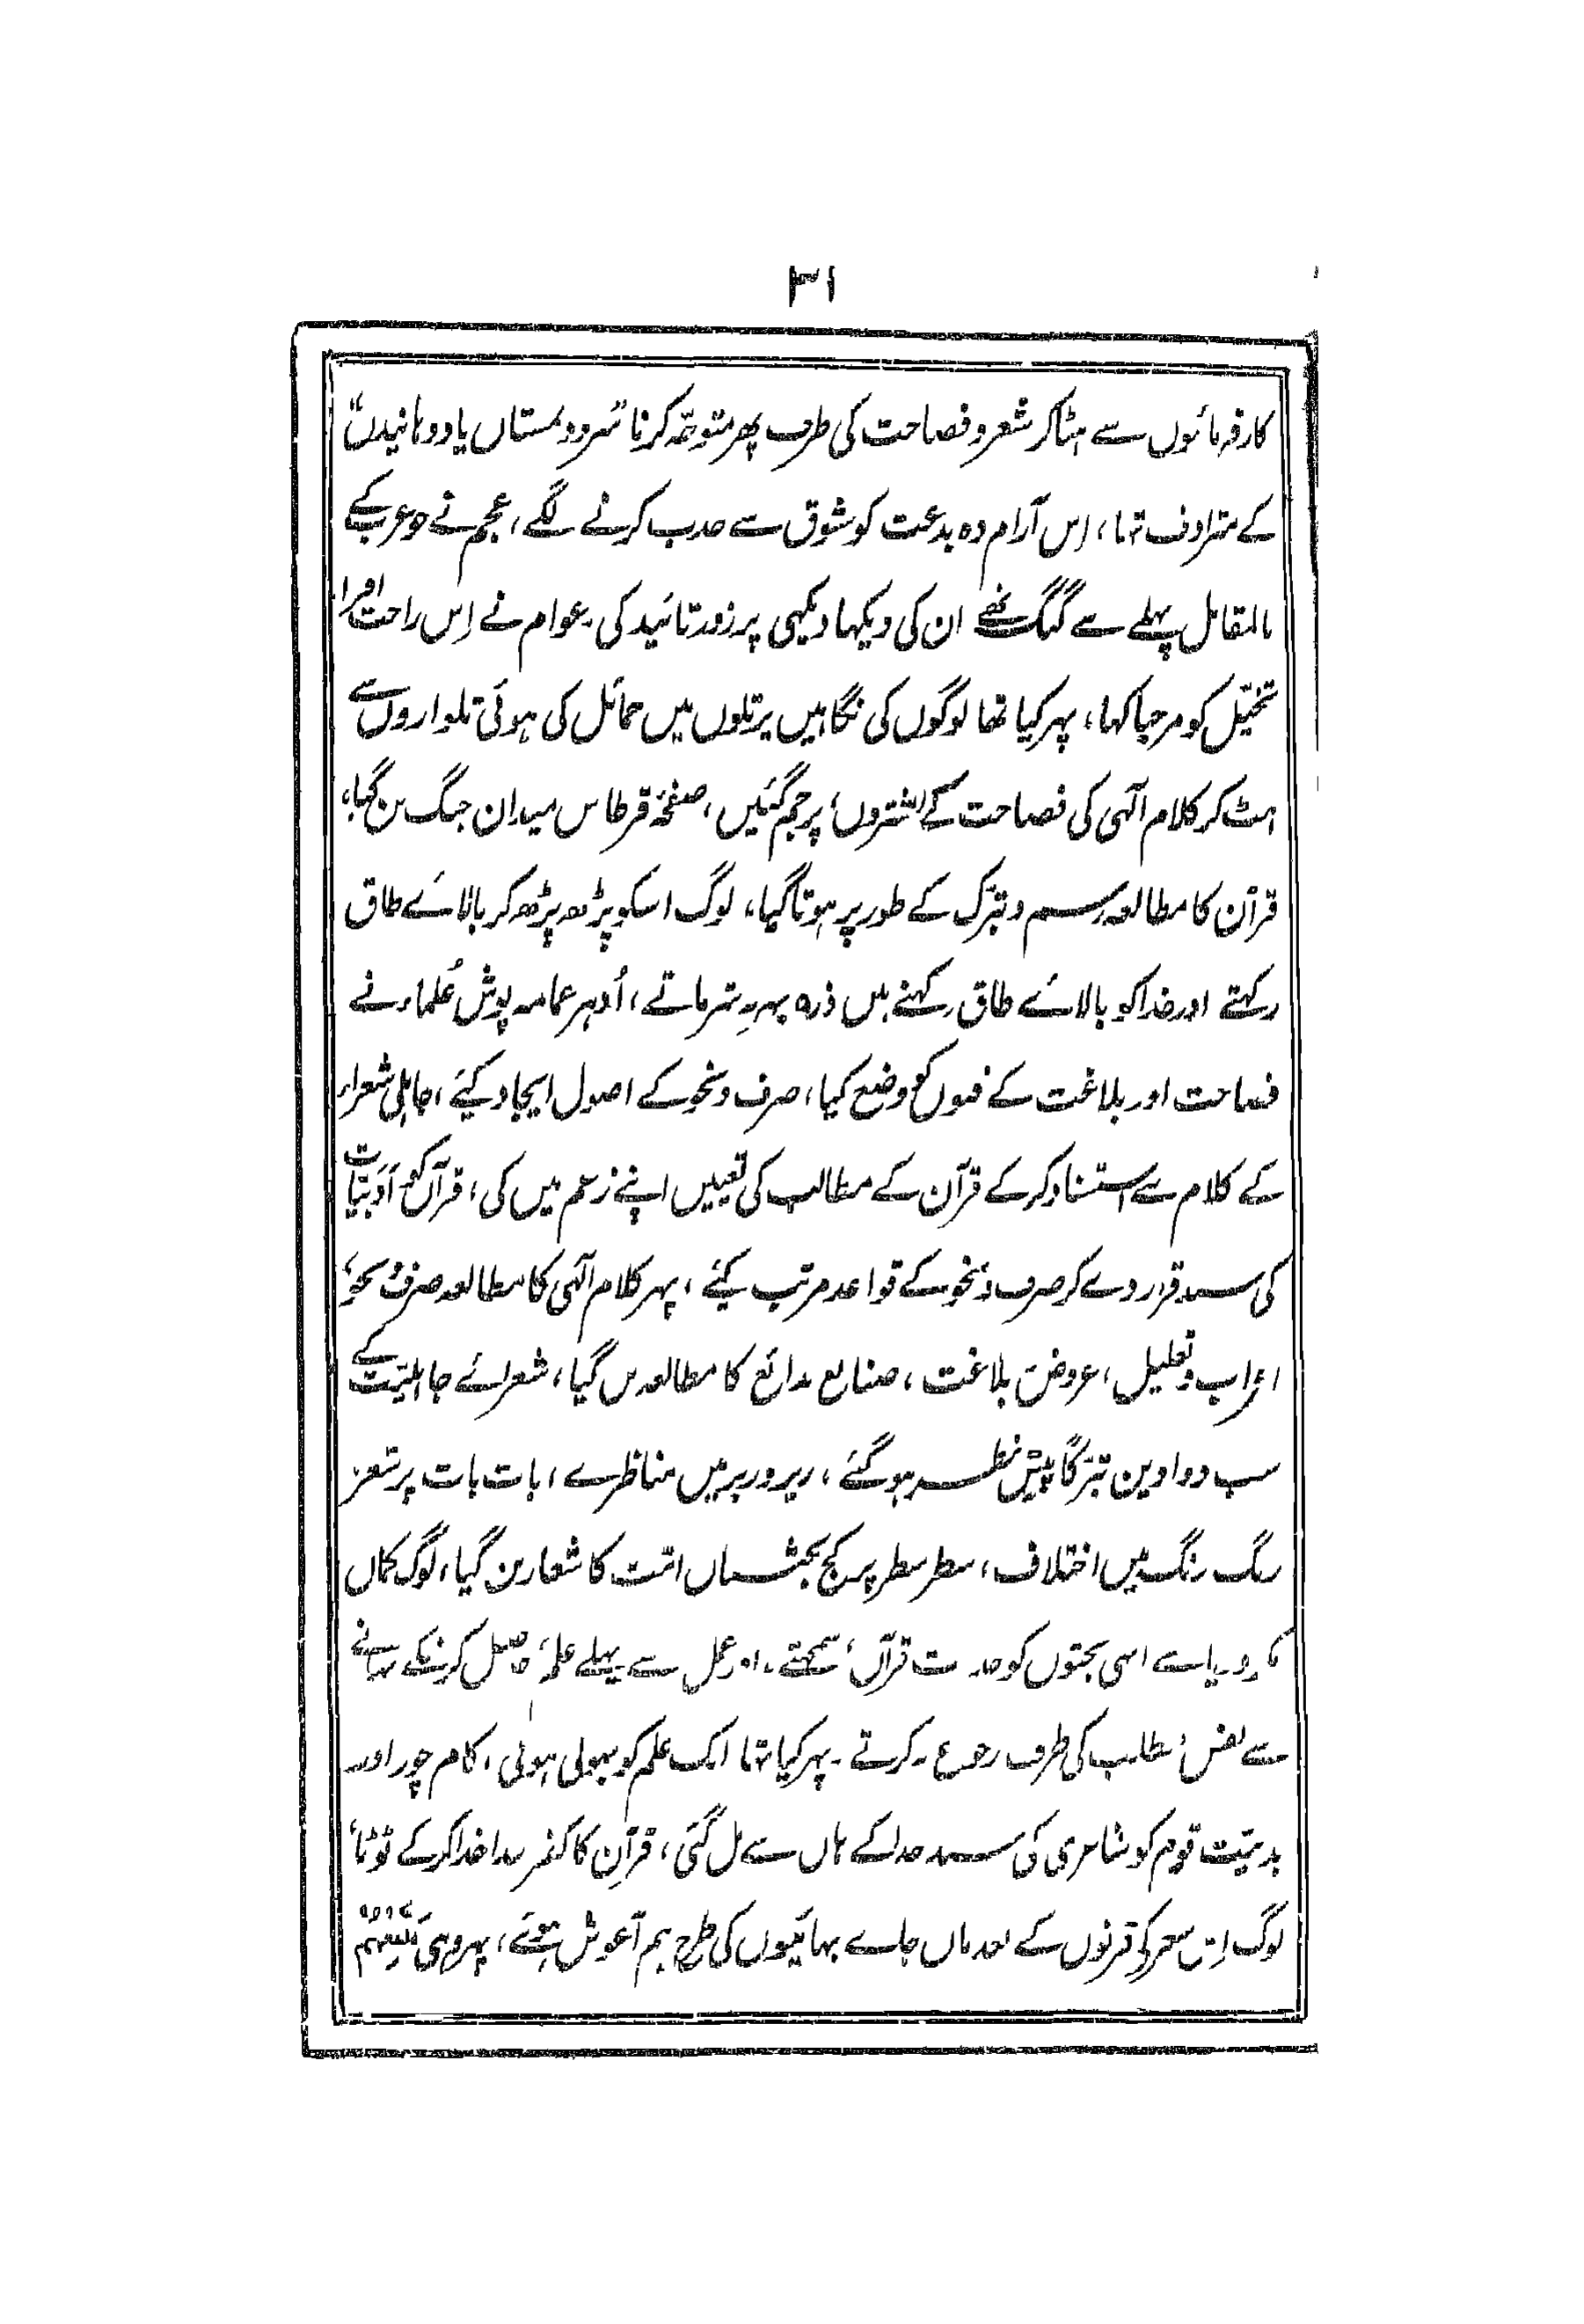 ۳۱
کارفرمائوں سے ہٹاکر شعر و فصاحت کی طرف پھر متوجّہ کرنا ”سرود بمستاں یاد دہانیدن“
کے مترادف تہا، اِس آرام دہ بدعت کو شوق سے جذب کرنے لگے، عجم نے جو عرب کے
بالمقابل پہلے سے گنگ تھے ان کی دیکہا دیکہی پرزور تائید کی۔ عوام نے اِس راحت افزا
تخیّل کو مرحبا کہا، پہر کیا تھا لوگوں کی نگاہیں پرتلوں میں حمائل کی ہوئی تلواروں سے
ہٹ کر کلام الٓہی کی فصاحت کے ’نشتروں‘ پر جم گئیں، صفحۂ قرطاس میدان جنگ بن گیا،
قرآن کا مطالعہ رسم و تبرّک کے طور پر ہوتا گیا، لوگ اسکو پڑھ پڑھ کر بالائے طاق
رکہتے اور خدا کو بالائے طاق رکہنے میں ذرہ بہر نہ شرماتے، اُدہر عمامہ پوش عُلماء نے
فصاحت اور بلاغت کے فنوں کو وضع کیا، صرف و نحو کے اصول ایجاد کیئے، جاہلی شعراء
کے کلام سے استناد کرکے قرآن کے مطالب کی تعیین اپنے زعم میں کی، قرآن کو اَدَبیّات
کی سند قرار دے کر صرف و نحو کے قواعد مرتب کیئے، پہر کلام الٓہی کا مطالعہ صرف و نحو،
اعراب و تعلیل، عروض بلاغت، صنایع بدائع کا مطالعہ بن گیا، شعرائے جاہلیّت کے
سب دواوین تبرّکاً پیش نظر ہوگئے، زیر و زبر میں مناظرے، بات بات پر شعر
رنگ رنگ میں اختلاف، سطر سطر پر کج بحثیاں امّت کا شعار بن گیا، لوگ کماں
اسی بحثوں کو خدمت قرآن‘ سمجہتے۔ اور عمل سے پہلے ’علم‘ حاصل کرنیکے بہانے
سے نفس مطلب کی طرف رجوع نہ کرتے۔ پہر کیا تہا ایک علم کو بہولی ہوئی، کام چور اور
بدنیّت قوم کو شاعری کی سند خدا کے ہاں سے مل گئی، قرآن کا کفر خدا خدا کرکے ٹوٹا،
لوگ اِس شعر کی قرنوں کے بعد ماں جائے بہائیوں کی طرح ہم آغوش ہوئے، پہر وہی